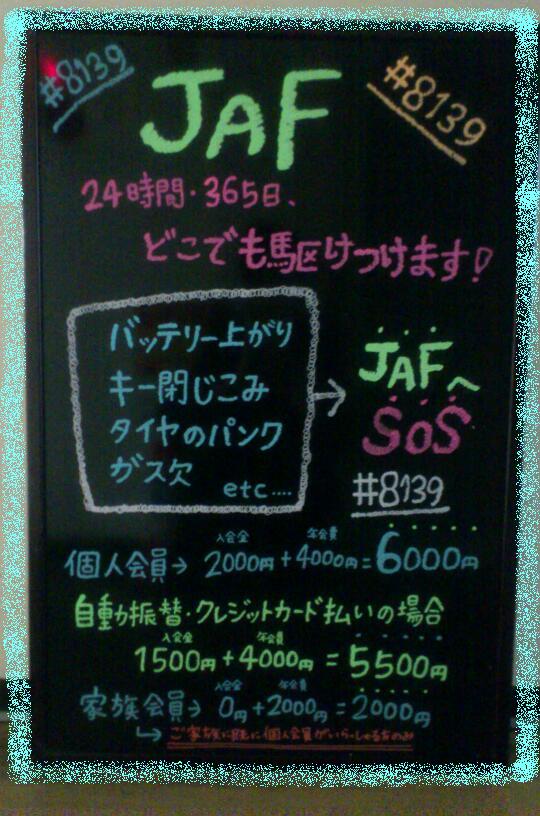 #8139
#8139
JAF
24時間・365日、
どこでも馬駆けつけます!
バッテリー上がり
キー閉じこみ
タイヤのパンク
ガス欠
etc....
JAFへ
SOS
#8139
入会金 年会費
個人会員→ 2000円+4000円=6000円
自動振替・クレジットカード払いの場合
入会金 年会費
1500円+4000円=5500円
入会金 年会費
家族会員→ 0円+2000円=2000円
ご家族に既に個人会員がいらっしゃる方のみ